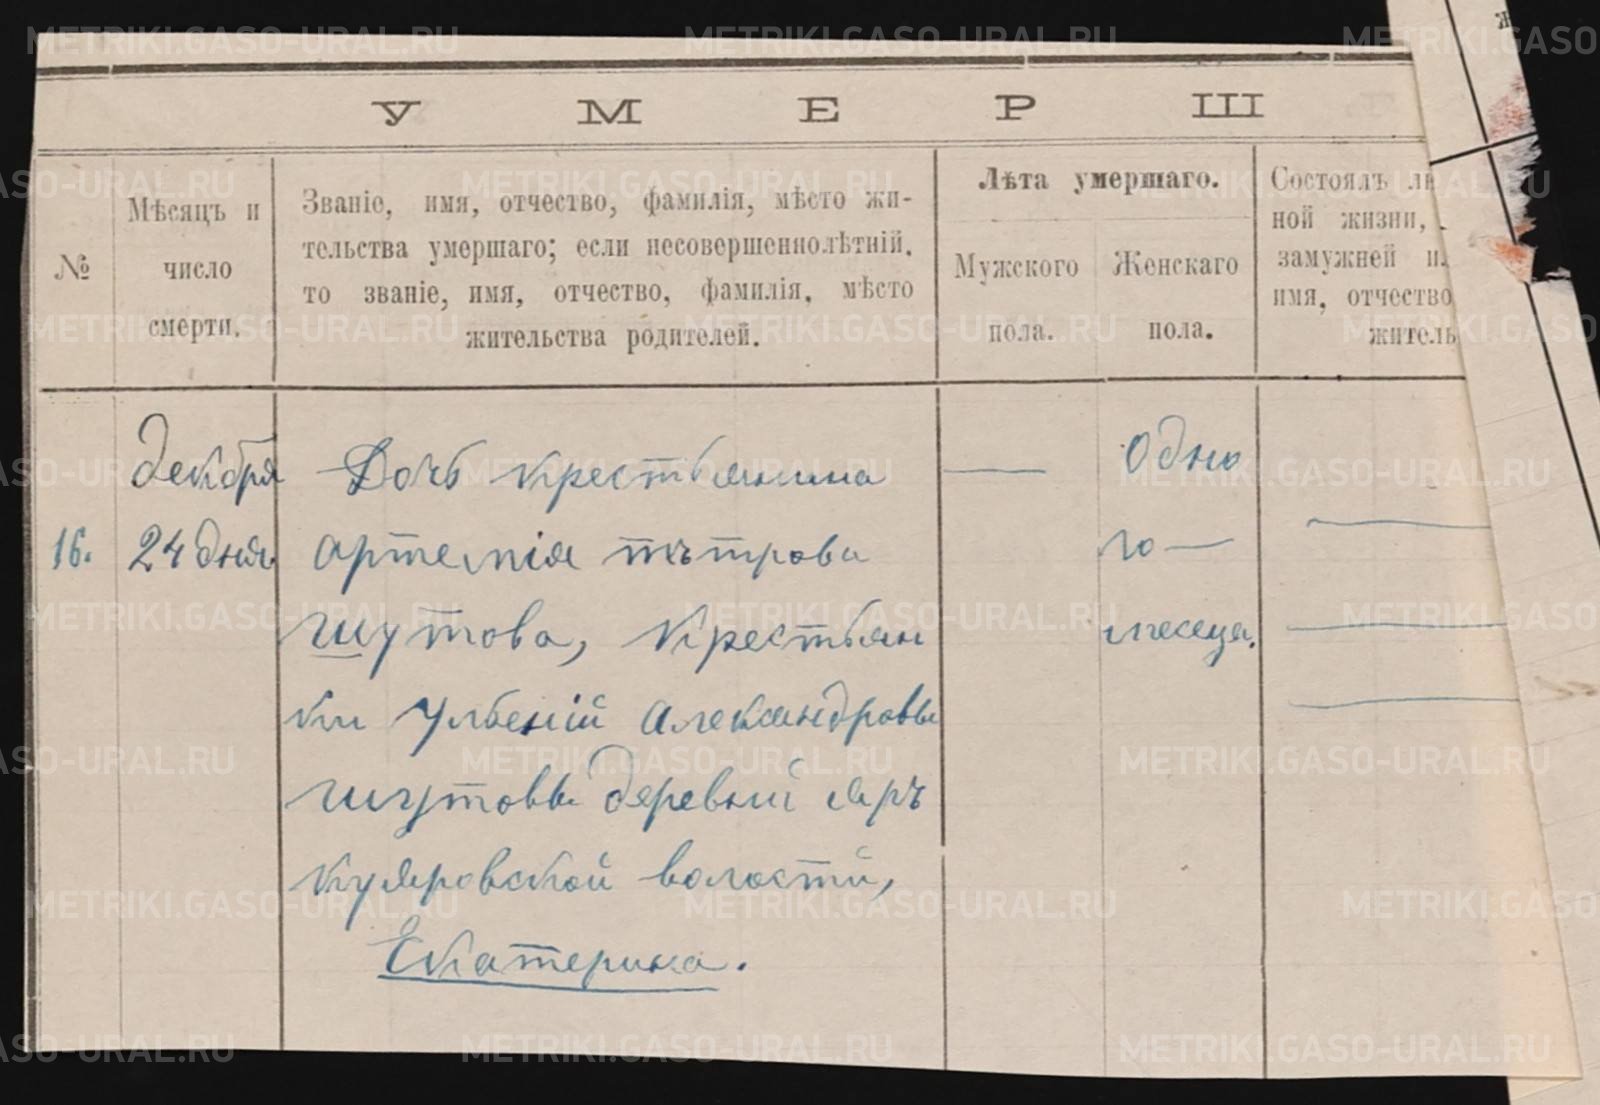 У М Е Р Ш
№
Мѣсяцъ и
число
смерти.
Званіе, имя, отчество, фамилія, мѣсто жи-
тельства умершаго; если несовершеннолѣтній,
то званіе, имя, отчество, фамилія, мѣсто
жительства родителей.
Лѣта умершаго.
Мужского
пола.
Женскаго
пола.
Состоялъ ли
ной жизни,
замужней ил
имя, отчество
житель
16.
декобря
24 дня
Дочь крестьянина
артемія пѣтрова
шутова, крестьян
ки Улбеній александровы
шутовы деревьни яръ
куяровской волости,
Екатерина.
Одно
го —
месеца.
METRIKI.GASO-URAL.RU